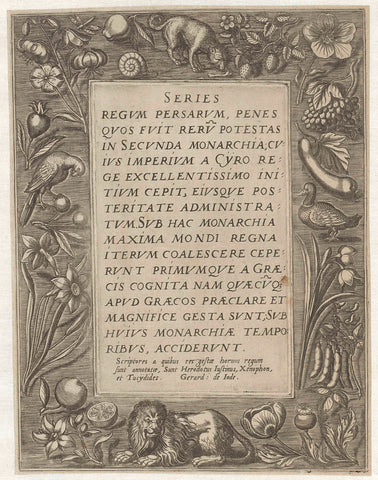 SERIES
REGVM PERSARVM, PENES
QVOS FVIT RERŨ POTESTAS
IN SECVNDA MONARCHIA, CV,
IVS IMPERIVM A CYRO RE=
GE EXCELLENTISSIMO INI=
TIVM CEPIT, EIVSQVE POS=
TERITATE ADMINISTRA=
TVM. SVB HAC MONARCHIA
MAXIMA MONDI REGNA
ITERVM COALESCERE CEPE=
RVNT PRIMVMQVE A GRÆ=
CIS COGNITA NAM QVÆCŨQ3
APVD GRÆCOS PRÆCLARE ET
MAGNIFICE GESTA SVNT, SVB
HVIVS MONARCHIÆ TEMPO
RIBVS, ACCIDERVNT.
Scriptores a quibus res gestæ horum regum
sunt annotatæ, Sunt Herodotus Iustinus, Xenophon,
et Tucydides. Gerard: de Iode.